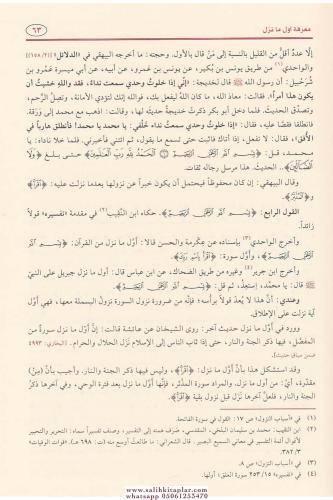 معرفة أول ما نزل
٦٣
إلّا عدد أقلّ من القليل بالنسبة إلى مَن قال بالأول. وحجته: ما أخرجه البيهقي في «الدلائل» [١٥٨/٢]
والواحدي(١) من طريق يونس بن بُكير، عن يونس بن عَمرو، عن أبيه، عن أبي ميسرة عمرو بن
شُرَحبيل: أن رسول الله ﷺ قال لخديجة: «إني إذا خلوتُ وحدي سمعت نداء، فقد والله خشيتُ أن
يكون هذا أمراً». فقالت: معاذَ الله، ما كان الله ليفعل بك، فوالله إنك لتؤدي الأمانة، وتصِلُ الرحِم،
وتصدُق الحديث. فلما دخل أبو بكر ذكرتْ خديجةُ حديثَه لها، وقالت: اذهب مع محمد إلى وَرَقة.
فانطلقا فقصَّا عليه، فقال: «إذا خلوت وحدي سمعت نداءً خلْفي: يا محمد يا محمد! فأنطلق هارباً في
الأفق». فقال: لا تفعل، إذا أتاك فاثبُت حتى تسمع ما يقول، ثم ائتني فأخبرني. فلما خلا ناداه: يا
محمد، قل: ﴿بِسْمِ اللَّهِ الرَّحْمَنِ الرَّحِيمِ ۝ الْحَمْدُ لِلَّهِ رَبِّ الْعَالَمِينَ﴾ حتى بلغ ﴿وَلَا
الضَّالِّينَ﴾. الحديث. هذا مرسل رجاله ثقات.
وقال البيهقي: إن كان محفوظاً فيحتمل أن يكون خبراً عن نزولها بعدما نزلت عليه: ﴿اقْرَأْ﴾
و﴿الْمُدَّثِّرُ﴾.
القول الرابع: ﴿بِسْمِ اللَّهِ الرَّحْمَنِ الرَّحِيمِ﴾. حكاه ابن النَّقيب(٢) في مقدمة «تفسيره» قولاً
زائداً.
وأخرج الواحدي(٣) بإسناده عن عِكرمة والحسن قالا: أول ما نزل من القرآن: ﴿بِسْمِ اللَّهِ
الرَّحْمَنِ الرَّحِيمِ﴾، وأوّل سورة: ﴿اقْرَأْ بِاسْمِ رَبِّكَ﴾.
وأخرج ابن جرير(٤) وغيره من طريق الضحاك، عن ابن عباس قال: أول ما نزل جبريل على النبيّ
ﷺ قال: يا محمّد، إستعِذْ، ثم قل: ﴿بِسْمِ اللَّهِ الرَّحْمَنِ الرَّحِيمِ﴾.
وعندي: أنّ هذا لا يُعدّ قولاً برأسه؛ فإنّه من ضرورة نزول السورة نزولُ البسملة معها، فهي أوّل
آية نزلت على الإطلاق.
وورد في أوّل ما نزل حديث آخر: روى الشيخان عن عائشة قالت: إنّ أوّل ما نزل سورةٌ من
المفصّل، فيها ذكر الجنة والنار، حتى إذا ثاب الناس إلى الإسلام نزل الحلال والحرام. [البخاري: ٤٩٩٣
ضمن سياق حديث].
وقد استشكل هذا بأنّ أوّل ما نزل: ﴿اقْرَأْ﴾، وليس فيها ذكر الجنة والنار، وأجيب بأنّ (مِنْ)
مقدرة، أي: من أول ما نزل، والمراد سورة المدّثر، فإنّها أوّل ما نزل بعد فترة الوحي، وفي آخرها ذكر
الجنة والنار، فلعلّ آخرها نزل قبل نزول بقيّة ﴿اقْرَأْ﴾.
(١) في «أسباب النزول» ص ١٧: القول في سورة الفاتحة.
(٢) ابن النقيب: محمد بن سليمان البلخي، المقدسي، صرَف همته إلى التفسير، وصنف تفسيراً سماه: التحرير والتحبير
لأقوال أئمة التفسير في معاني السميع البصير. قال الشعراني: ما طالعت أوسع منه (ت: ٦٩٨ هـ). «فوات الوفيات»
٣٨٢/٣.
(٣) في «أسباب النزول» ص ٨.
(٤) في «تفسيره» ٢٥٣/١٥ سورة العلق: أولها.
www.salihkitaplar.com
whatsapp 05061253470